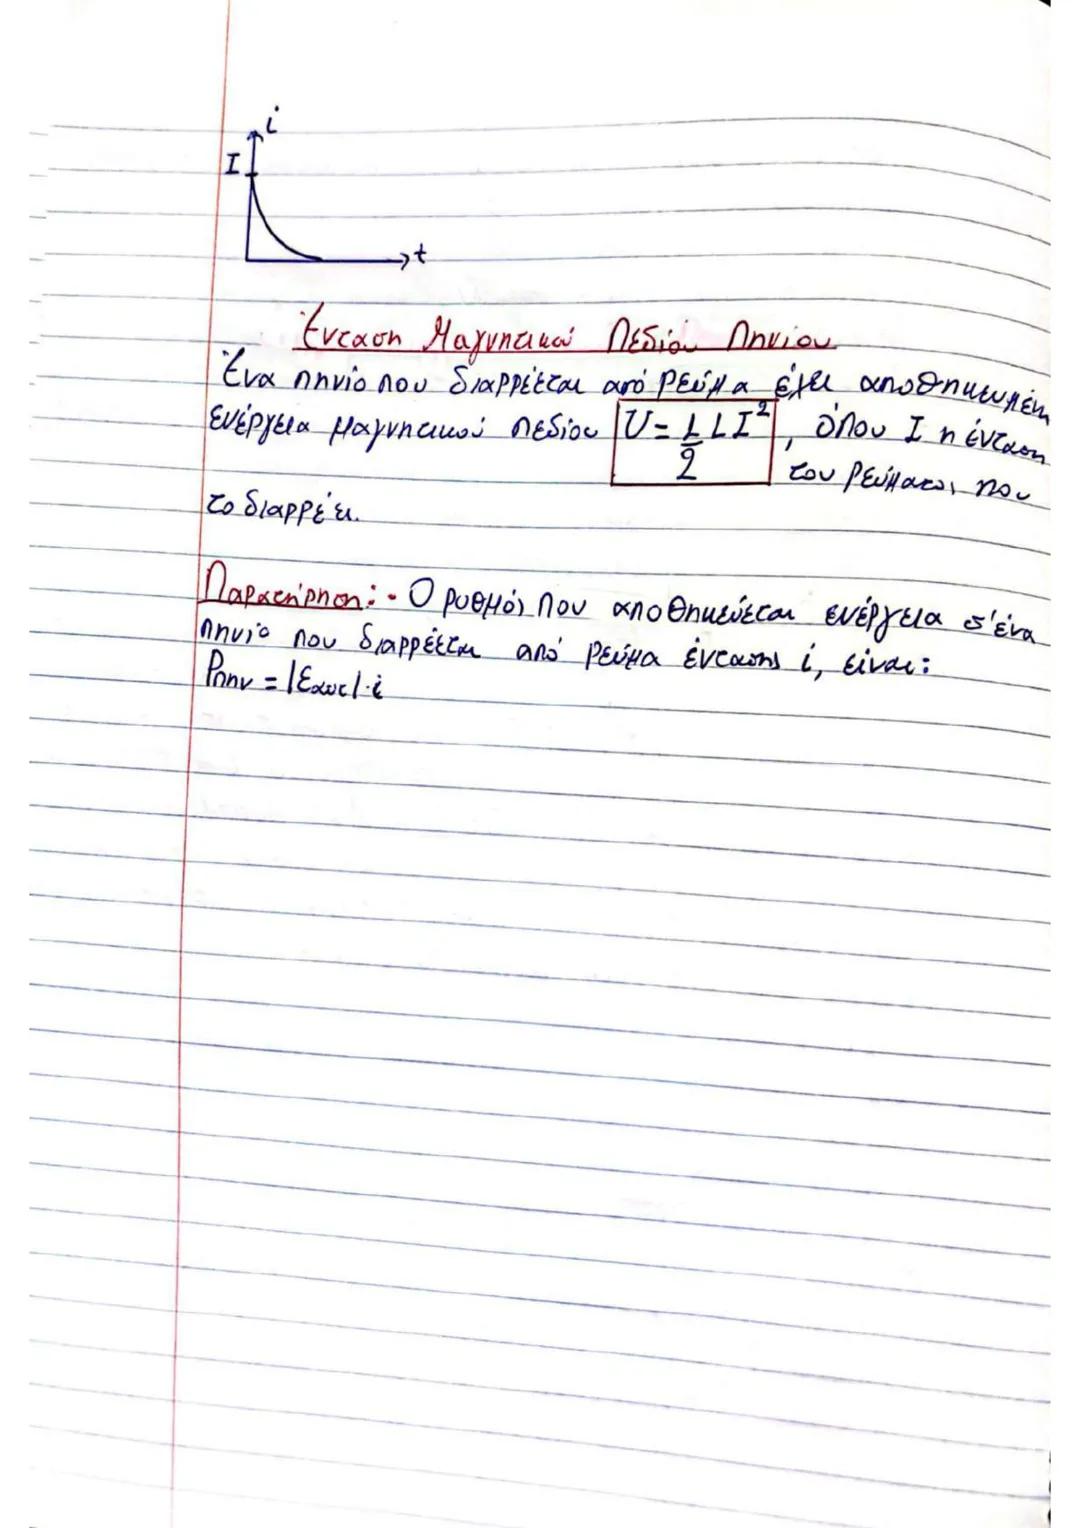 i
I
t
Ένταση Μαγνητικού Πεδίου Πηνίου
Ένα πηνίο που διαρρέεται από ρεύμα έχει αποθηκευμένη
ενέργεια μαγνητικού πεδίου U = 1/2 L I², όπου I η ένταση
του ρεύματος που
το διαρρέει.
Παρατήρηση: - Ο ρυθμός που αποθηκεύεται ενέργεια σ'ένα
πηνίο που διαρρέεται από ρεύμα έντασης i, είναι:
Pπην = |Εαυτ|·i